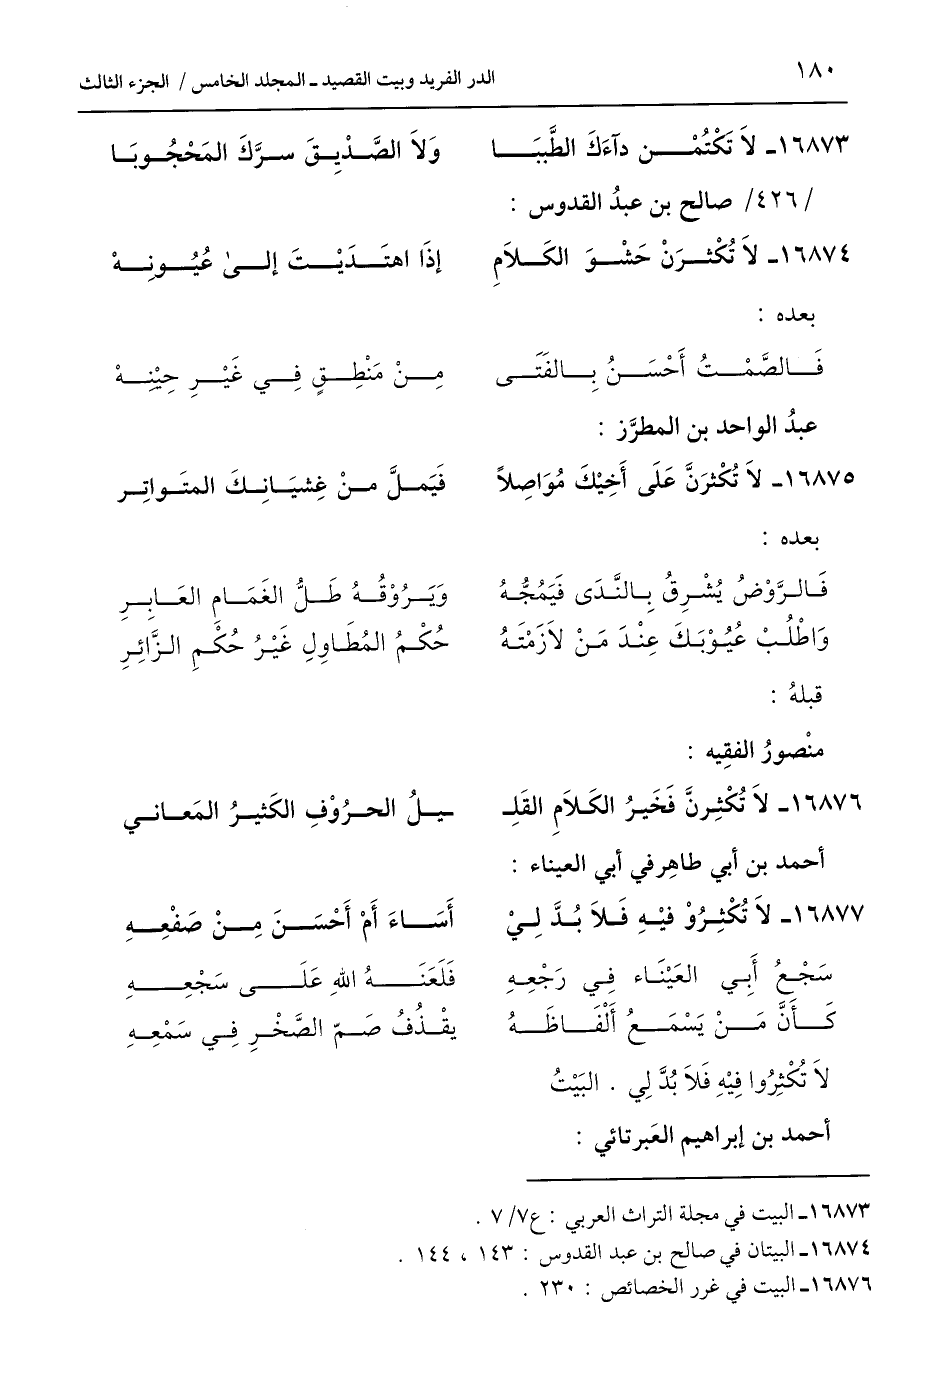 ١٨٠ الدر الفريد وبيت القصيد ـ المجلد الخامس / الجزء الثالث
١٦٨٧٣ـ لاَ تَكْتُمْـن دآءَكَ الطَّبِيَـا وَلاَ الصَّـدِيـقَ سـرَّكَ المَحْجُـوبَـا
/ ٤٢٦/ صالح بن عبدُ القدوس :
١٦٨٧٤ـ لاَ تُكْثِـرَنْ حَشْـوَ الكَـلاَمِ إذَا اهتَـدَيْـتَ إلـىٰ عُيُـونِـهْ
بعده :
فَـالصَّمْـتُ أَحْسَـنُ بِـالفَتَـى مِـنْ مَنْطِـقٍ فِـي غَيْـرِ حِيْنِـهْ
عبدُ الواحد بن المطرَّز :
١٦٨٧٥ـ لاَ تُكْثرَنَّ عَلَى أَخِيْكَ مُوَاصِلاً فَيَملَّ مـنْ غِشيَـانِـكَ المتَـواتِـر
بعده :
فَـالـرَّوْضُ يُشْـرِقُ بِـالنَّـدَى فَيَمُجُّـهُ وَيَـرُوْقُـهُ طَـلُّ الغَمَـامِ العَـابِـرِ
وَاطْلُـبْ عُيُـوْبَـكَ عِنْـدَ مَـنْ لاَزَمْتَـهُ حُكْـمُ المُطَـاوِلِ غَيْرُ حُكْمِ الـزَّائِـرِ
قبلهُ :
منْصورُ الفقِيه :
١٦٨٧٦ـ لاَ تُكْثِرنَّ فَخَيرُ الكَـلاَمِ القَلِـ ـيـلُ الحـرُوْفِ الكَثيـرُ المَعـانـي
أحمد بن أبي طاهِرفي أبي العيناء :
١٦٨٧٧ـ لاَ تُكْثِـرُوْ فيْـهِ فَـلاَ بُـدَّ لِـيْ أَسَـاءَ أَمْ أَحْسَـنَ مِـنْ صَفْعِـهِ
سَجْـعُ أَبِـي العَيْنَـاء فِـي رَجْعِـهِ فَلَعَنَـهُ اللهِ عَلَـى سَجْعِـهِ
كَـأَنَّ مَـنْ يَسْمَـعُ أَلْفَـاظَـهُ يقْـذَفُ صَـمّ الصَّخْـرِ فِـي سَمْعِـهِ
لاَ تُكْثِرُوا فِيْهِ فَلاَ بُدَّ لِي . البَيْتُ
أحمد بن إبراهيم العَبرتائي :
١٦٨٧٣ـ البيت في مجلة التراث العربي : ع٧/ ٧ .
١٦٨٧٤ـ البيتان في صالح بن عبد القدوس : ١٤٣ ، ١٤٤ .
١٦٨٧٦ـ البيت في غرر الخصائص : ٢٣٠ .